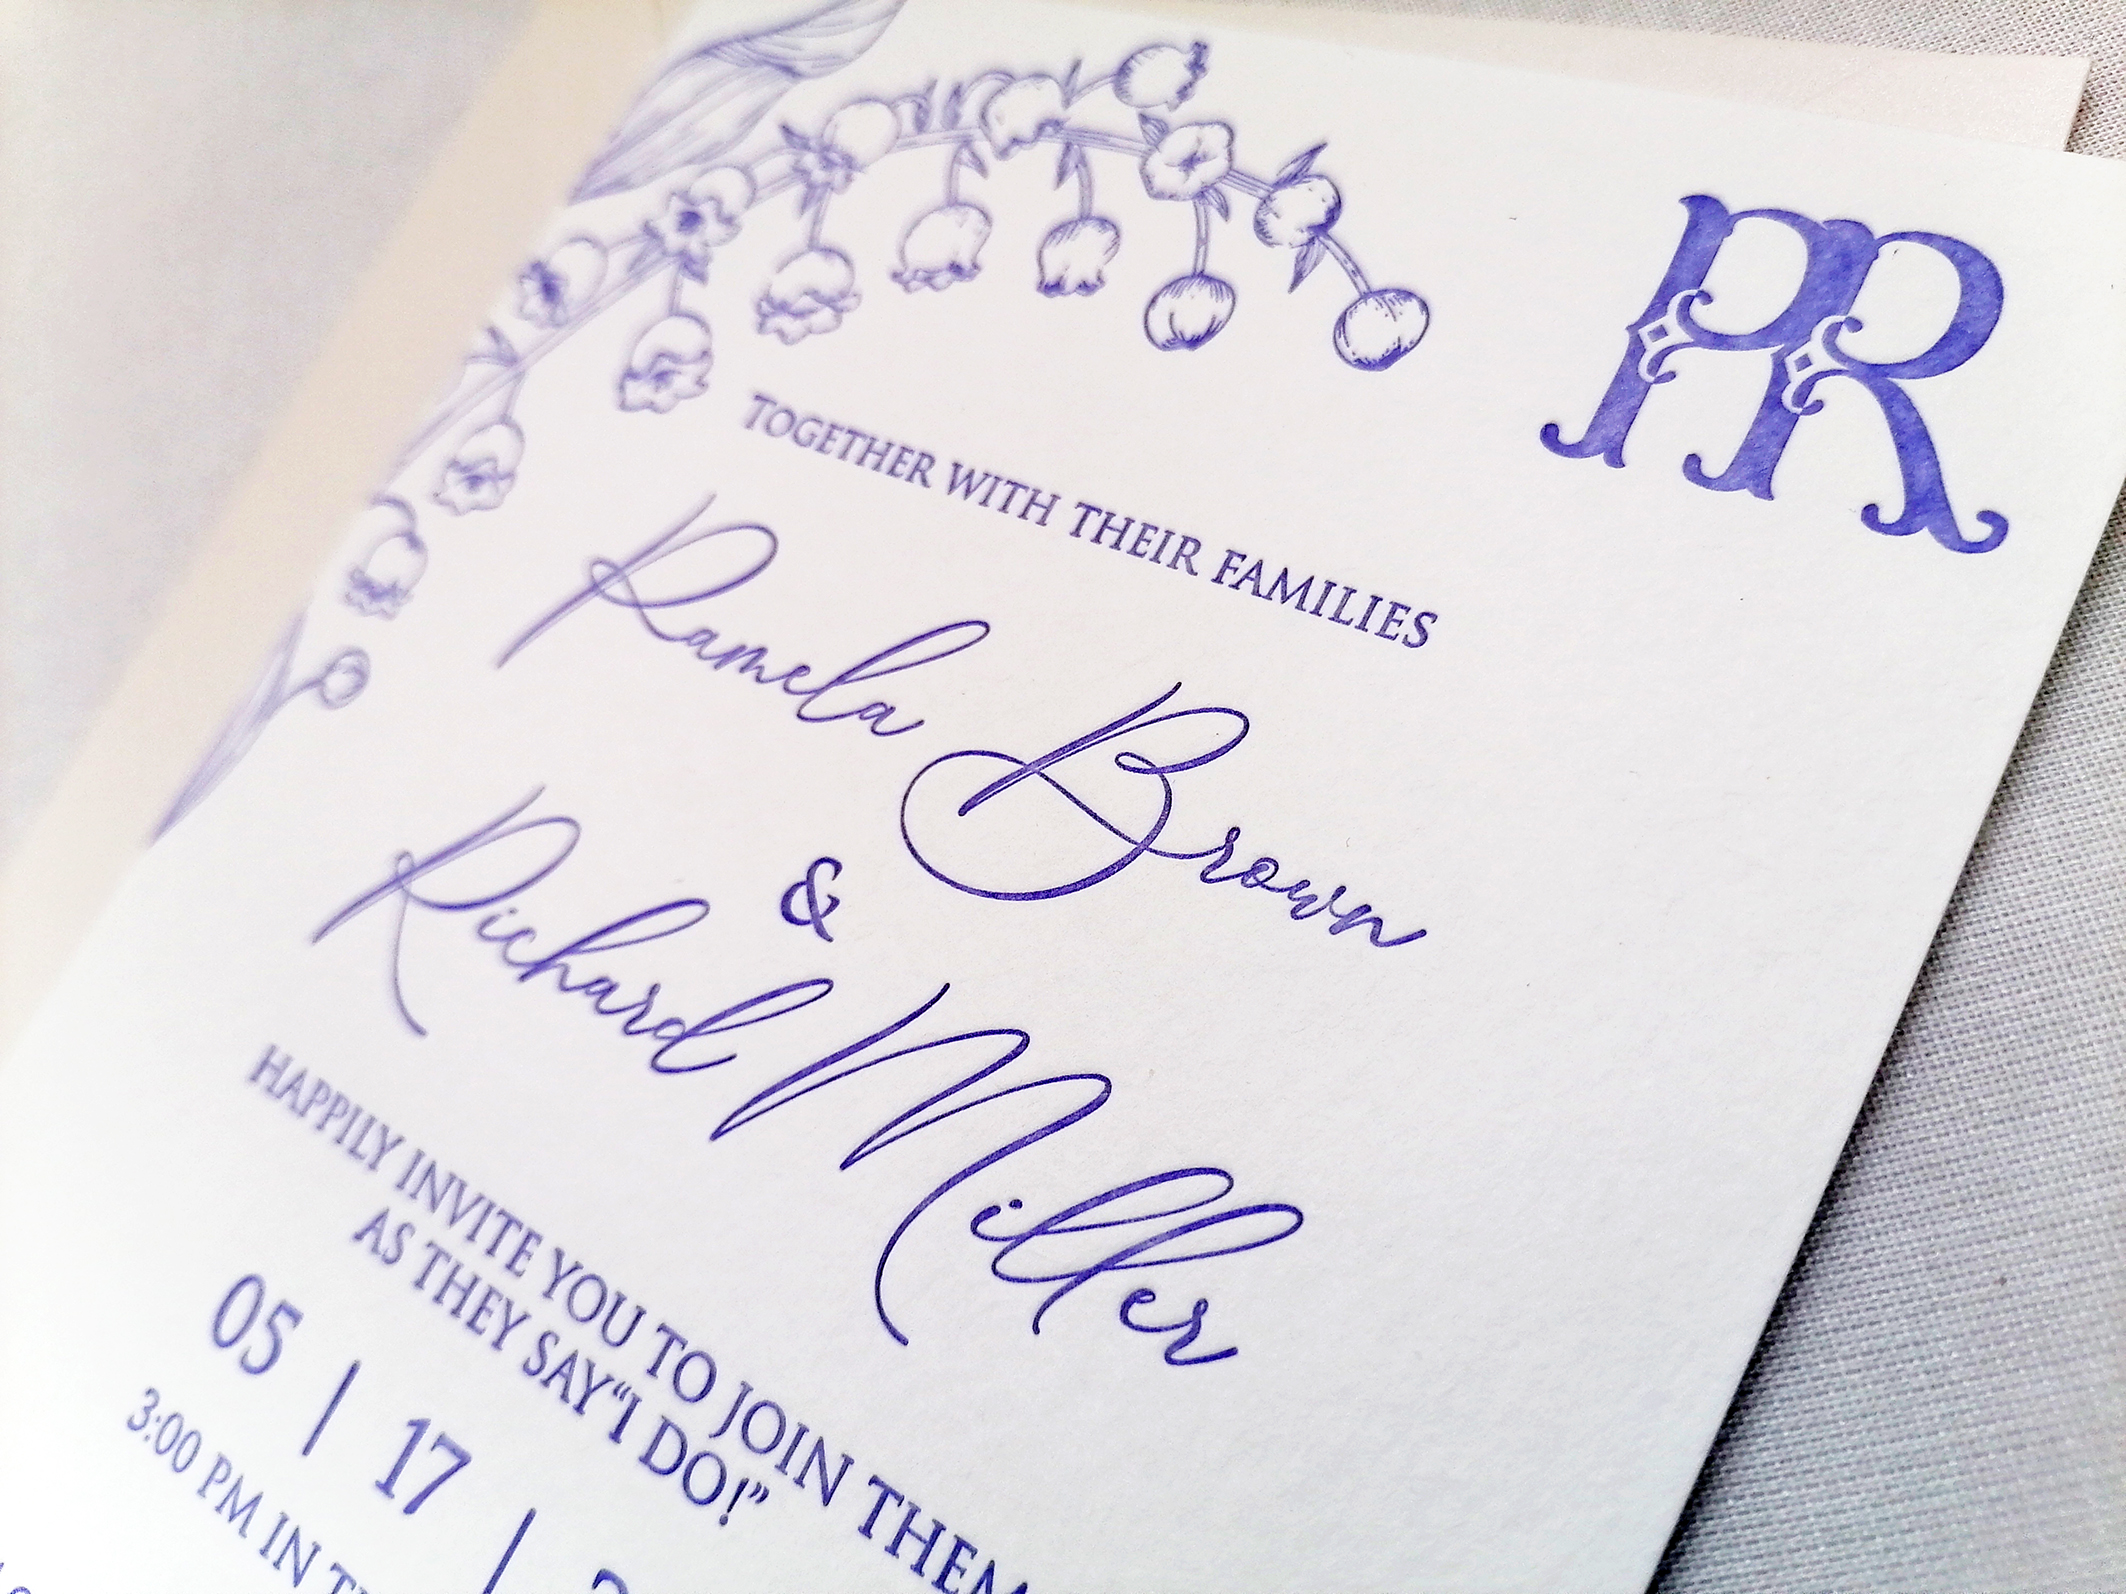 PR
TOGETHER WITH THEIR FAMILIES
Pamela Brown
&
Richard Miller
HAPPILY INVITE YOU TO JOIN THEM
AS THEY SAY“I DO!”
05 | 17 |
3:00 PM IN